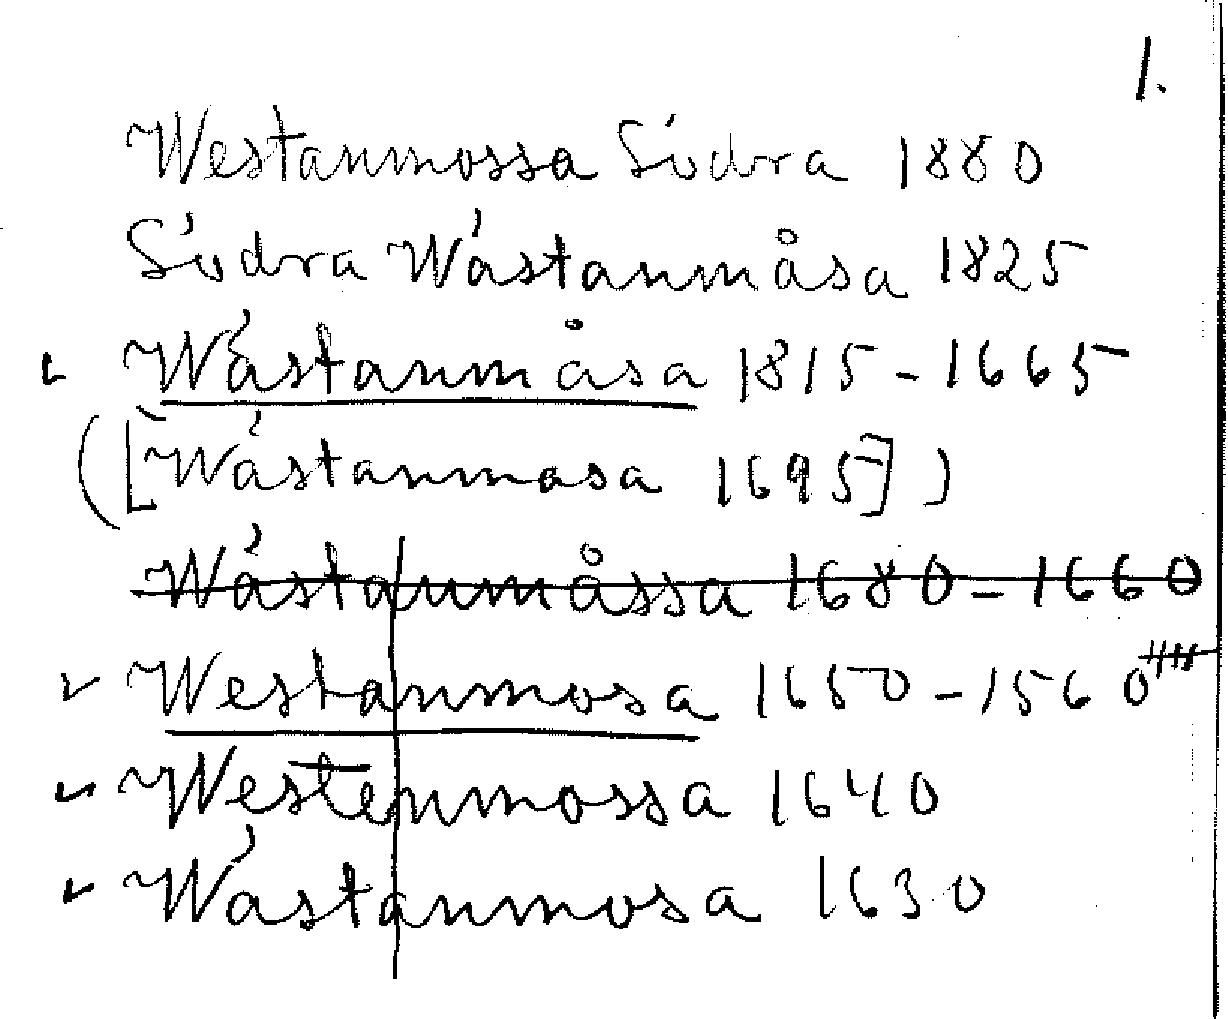 1.
Westanmossa Södra 1880
Södra Wästanmåsa 1825
Wästanmåsa 1815-1665
([Wästanmasa 1695])
Wästanmåssa 1680-1660
Westanmosa 1650-1560
Westenmossa 1640
Wästanmosa 1630